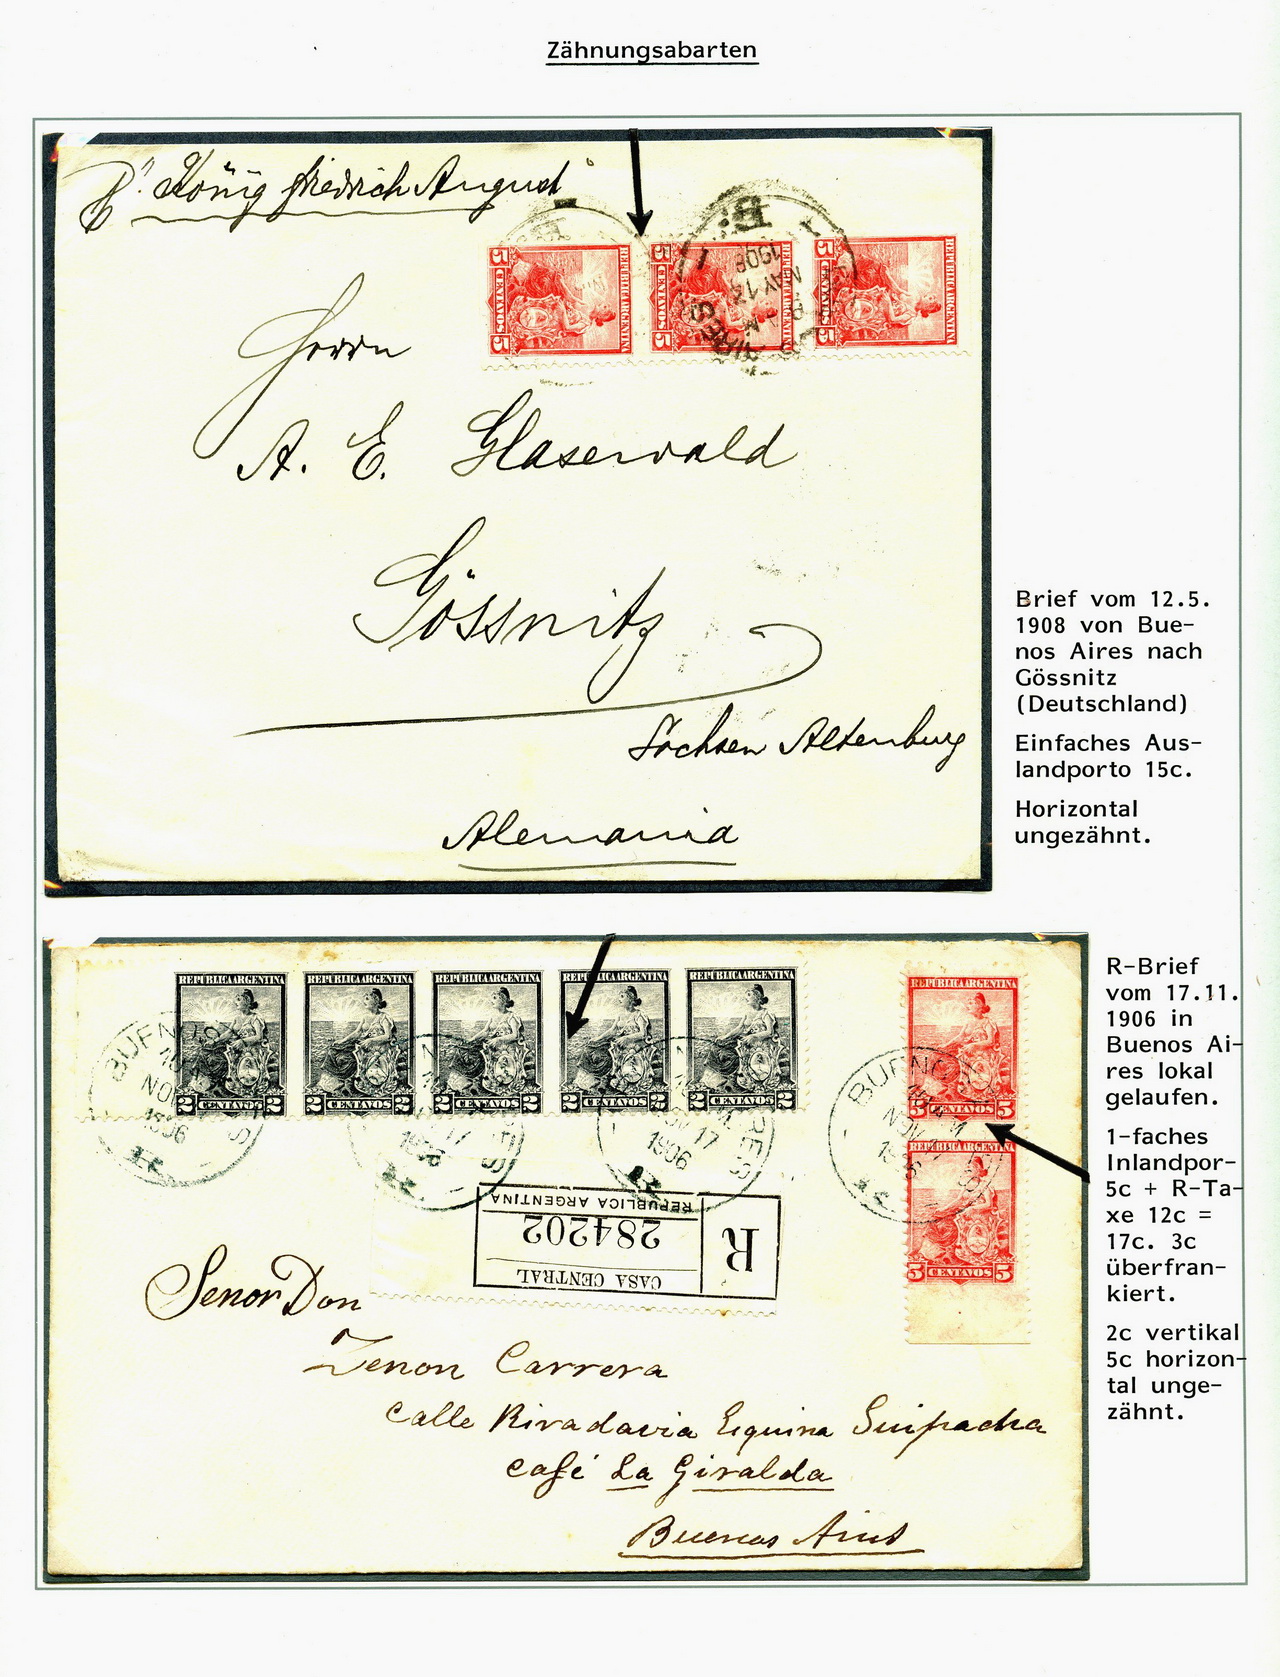 Zähnungsabarten
"König Friedrich August"
REPUBLICA ARGENTINA
5 CENTAVOS 5
REPUBLICA ARGENTINA
5 CENTAVOS 5
REPUBLICA ARGENTINA
5 CENTAVOS 5
MAY 12
1908
Herrn
A. E. Glasewald
Gössnitz
Sachsen Altenburg
Alemania
Brief vom 12.5.
1908 von Bue-
nos Aires nach
Gössnitz
(Deutschland)
Einfaches Aus-
landporto 15c.
Horizontal
ungezähnt.
REPUBLICA ARGENTINA
2 CENTAVOS 2
REPUBLICA ARGENTINA
2 CENTAVOS 2
REPUBLICA ARGENTINA
2 CENTAVOS 2
REPUBLICA ARGENTINA
2 CENTAVOS 2
REPUBLICA ARGENTINA
2 CENTAVOS 2
REPUBLICA ARGENTINA
5 CENTAVOS 5
5 CENTAVOS 5
NOV 17
1906
R
CASA CENTRAL
284202
REPUBLICA ARGENTINA
Senor Don
Zenon Carrera
Calle Rivadavia Esquina Suipacha
Café La Giralda
Buenos Aires
R-Brief
vom 17.11.
1906 in
Buenos Ai-
res lokal
gelaufen.
1-faches
Inlandpor-
5c + R-Ta-
xe 12c =
17c. 3c
überfran-
kiert.
2c vertikal
5c horizon-
tal unge-
zähnt.